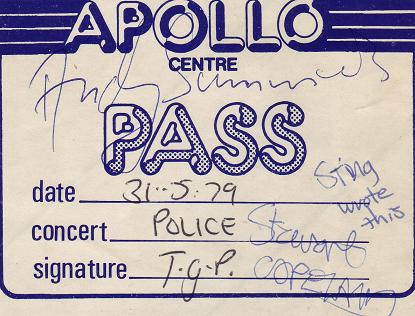 APOLLO
CENTRE
Andy Summers
PASS
date 31-5-79
concert POLICE
signature T.G.P.
Sting
wrote
this
Stewart
COPELAND